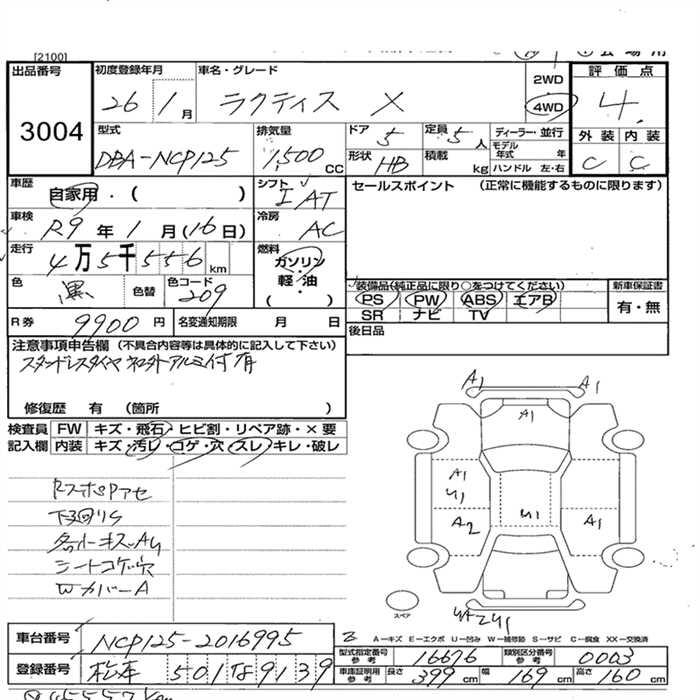 [2100]
出品番号
3004
初度登録年月
26 1月
車名・グレード
ラクティス X
2WD
4WD
評価点
4
型式
DBA-NCP125
排気量
1,500 CC
ドア
5
定員
5人
ディーラー・並行
モデル年式 年
外装 内装
C C
形状
HB
積載
kg
ハンドル 左・右
車歴
自家用・( )
シフト
I AT
セールスポイント (正常に機能するものに限ります)
車検
R9年1月(16日)
冷房
AC
走行
4万5千556km
燃料
ガソリン・軽油
( )
色
黒
色替
色コード
209
装備品(純正品に限り○をつけてください)
PS PW ABS エアB
SR ナビ TV
新車保証書
有・無
R券
9900円
名変通知期限 月 日
後日品
注意事項申告欄(不具合内容等は具体的に記入して下さい)
修復歴 有 (箇所 )
検査員記入欄
FW キズ・飛石・ヒビ割・リペア跡・×要
内装 キズ・汚レ・コゲ・穴・スレ・キレ・破レ
下廻りS
シートコゲ穴
Wカバー A
A1
A1
A1
A1
U1
A2
U1
A1
スペア
A-キズ E-エクボ U-凹み W-補修跡 S-サビ C-腐食 XX-交換済
車台番号
NCP125-2016995
登録番号
松本 501 9139
型式指定番号 参考
16676
類別区分番号 参考
0003
車庫証明用 参考
長さ 399cm
幅 169cm
高さ 160cm